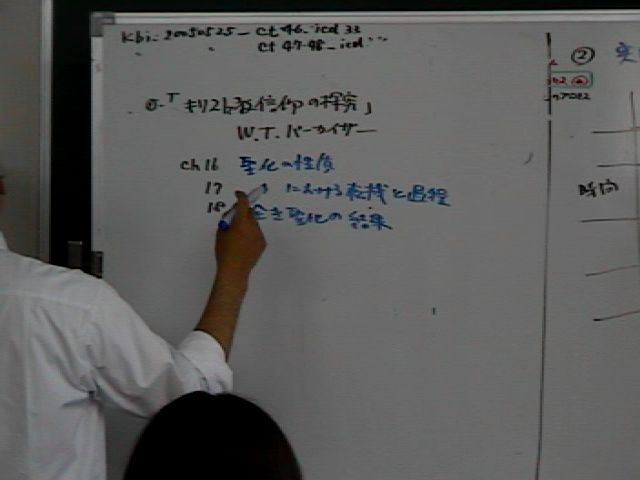 kbi-20050525_ct46_icd 33
ct 47-48_icd
キリスト教信仰の探究」
W.T.パーカイザー
ch 16 聖化の性質
17 における危機と過程
18 全き聖化の結果
②
時間